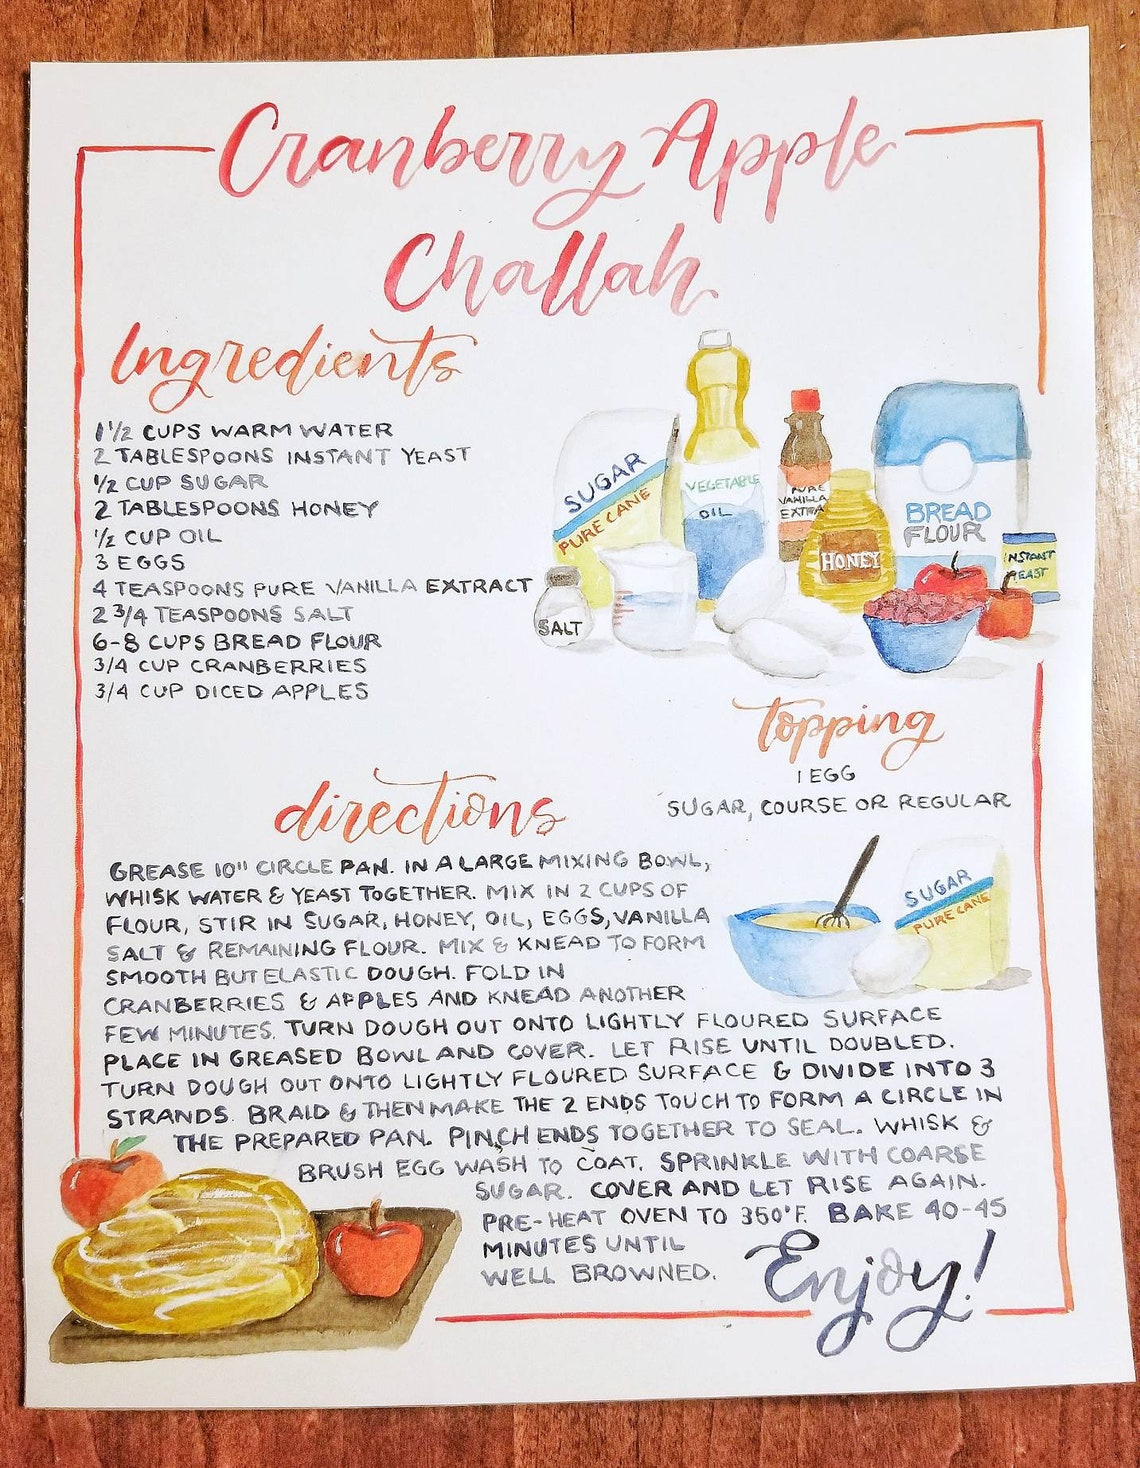 Cranberry Apple
Challah
Ingredients
1 1/2 CUPS WARM WATER
2 TABLESPOONS INSTANT YEAST
1/2 CUP SUGAR
2 TABLESPOONS HONEY
1/2 CUP OIL
3 EGGS
4 TEASPOONS PURE VANILLA EXTRACT
2 3/4 TEASPOONS SALT
6-8 CUPS BREAD FLOUR
3/4 CUP CRANBERRIES
3/4 CUP DICED APPLES
SUGAR
PURE CANE
VEGETABLE
OIL
PURE
VANILLA
EXTRA
HONEY
BREAD
FLOUR
INSTANT
YEAST
SALT
topping
1 EGG
SUGAR, COURSE OR REGULAR
SUGAR
PURE CANE
directions
GREASE 10" CIRCLE PAN. IN A LARGE MIXING BOWL,
WHISK WATER & YEAST TOGETHER. MIX IN 2 CUPS OF
FLOUR, STIR IN SUGAR, HONEY, OIL, EGGS, VANILLA
SALT & REMAINING FLOUR. MIX & KNEAD TO FORM
SMOOTH BUT ELASTIC DOUGH. FOLD IN
CRANBERRIES & APPLES AND KNEAD ANOTHER
FEW MINUTES. TURN DOUGH OUT ONTO LIGHTLY FLOURED SURFACE
PLACE IN GREASED BOWL AND COVER. LET RISE UNTIL DOUBLED.
TURN DOUGH OUT ONTO LIGHTLY FLOURED SURFACE & DIVIDE INTO 3
STRANDS. BRAID & THEN MAKE THE 2 ENDS TOUCH TO FORM A CIRCLE IN
THE PREPARED PAN. PINCH ENDS TOGETHER TO SEAL. WHISK &
BRUSH EGG WASH TO COAT. SPRINKLE WITH COARSE
SUGAR. COVER AND LET RISE AGAIN.
PRE-HEAT OVEN TO 350°F. BAKE 40-45
MINUTES UNTIL
WELL BROWNED.
Enjoy!